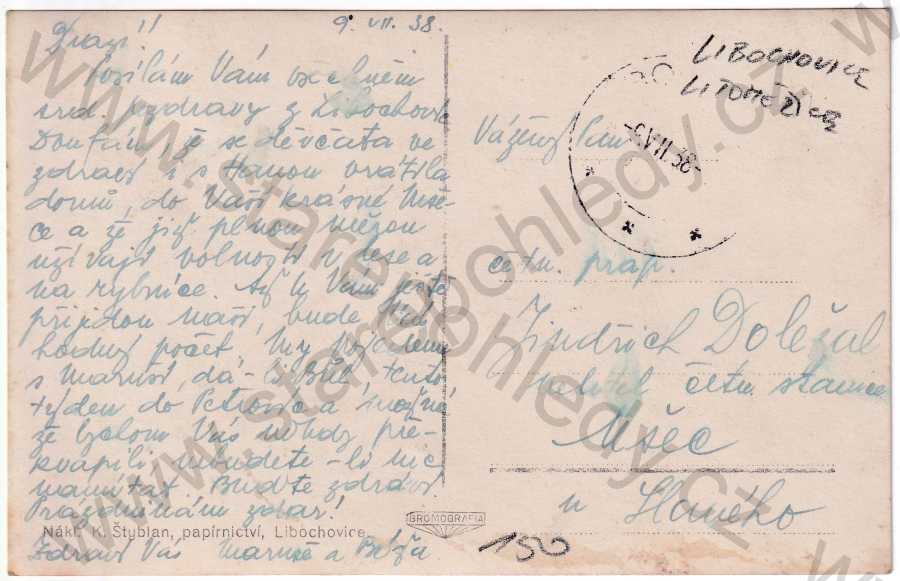 Drazí!! 9. VII. 38.
Posílám Vám všechněm
srd. pozdravy z Libochovic
Doufám, že se děvčata ve
zdraví i s Hanou vrátila
domů, do Vaší krásné Mše-
ce a že již plnou měrou
užívají volnosti v lese a
na rybníce. Až k Vám ještě
přijdou naši, bude
hodný počet. My pojedeme
s Marušší, dá-li Bůh, tento
týden do Petrovic a možná
že bychom Vás někdy pře-
kvapili nebudete-li nic
namítat. Buďte zdrávi.
Prázdninám zdar!
Zdraví Vás Maruš a Božka
Nákl. K. Štyblan, papírnictví, Libochovice
GROMOGRAFIA
LIBOCHOVICE
LITOMĚŘICE
-9.VII.38-
Vážený Pan
četn. prap.
Jindřich Doležal
velitel četn. stanice
Mšec
u Slaného
150
www.starepohledy.cz